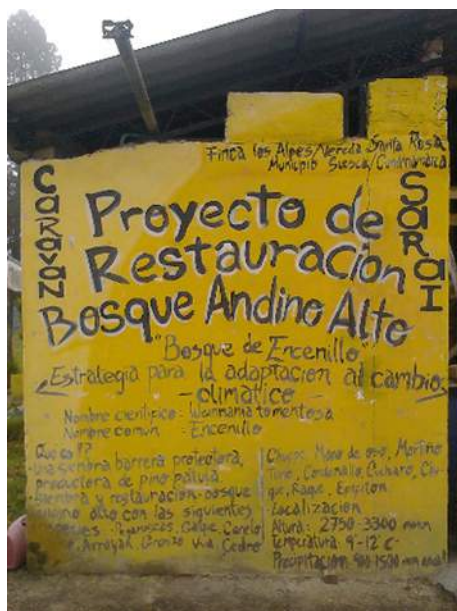 Finca los Alpes/Vereda Santa Rosa
Municipio Suesca/Cundinamarca
CaRavaN
SaRaI
Proyecto de
Restauracion
Bosque Andino Alto
"Bosque de Encenillo"
Estrategia para la adaptacion al cambio
-climatico-
Nombre cientifico: Weinmannia tomentosa
Nombre comun: Encenillo
Que es??
una siembra barrera protectora,
productora de pino patula
siembra y restauracion-bosque
andino alto con las siguientes
especies
Arrayan
Cedro
Chuque, Mano de oso, Mortiño
Tuno, Cordoncillo, Cucharo
Raque
Localizacion
Altura: 2750-3300 msnm
Temperatura 9-12 c-
Precipitacion